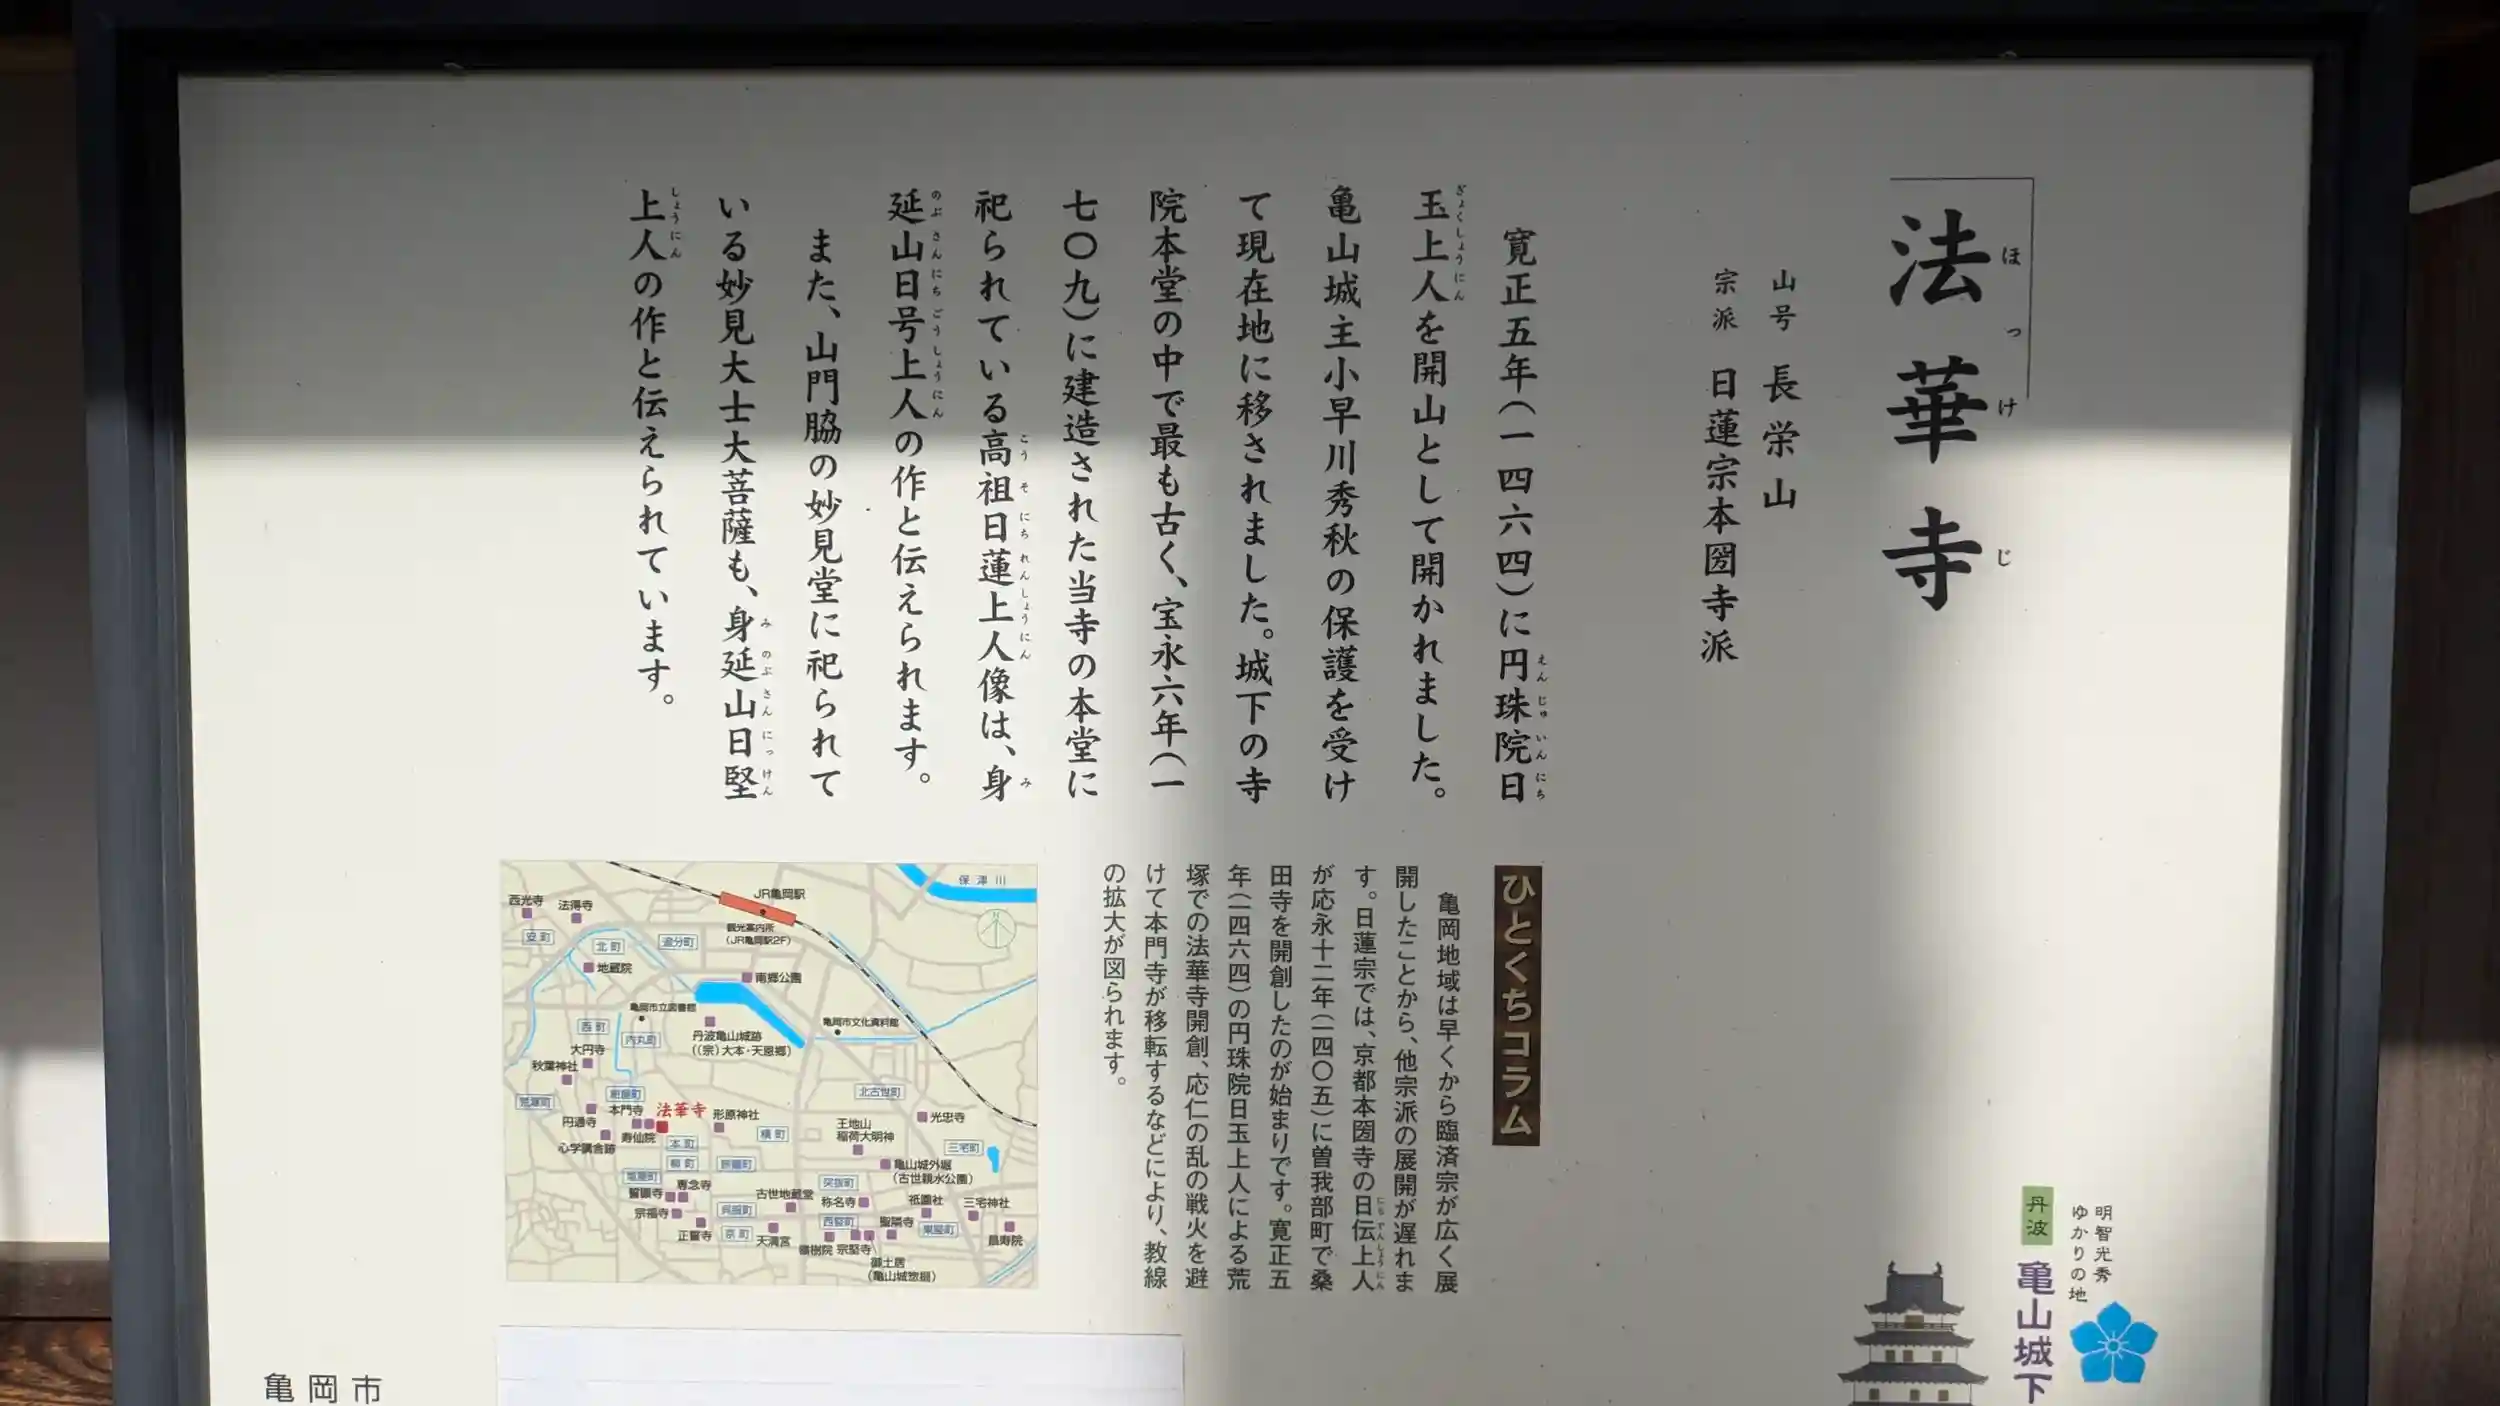 法華寺
ほっけじ
山号 長栄山
宗派 日蓮宗本圀寺派
寛正五年(一四六四)に円珠院日
えんじゅいんにち
玉上人を開山として開かれました。
ぎょくしょうにん
亀山城主小早川秀秋の保護を受け
て現在地に移されました。城下の寺
院本堂の中で最も古く、宝永六年(一
七〇九)に建造された当寺の本堂に
祀られている高祖日蓮上人像は、身
こうそにちれんしょうにん み
延山日号上人の作と伝えられます。
のぶさんにちごうしょうにん
また、山門脇の妙見堂に祀られて
いる妙見大士大菩薩も、身延山日堅
みのぶさんにっけん
上人の作と伝えられています。
しょうにん
ひとくちコラム
亀岡地域は早くから臨済宗が広く展
開したことから、他宗派の展開が遅れま
す。日蓮宗では、京都本圀寺の日伝上人
にちでんしょうにん
が応永十二年(一四〇五)に曽我部町で桑
田寺を開創したのが始まりです。寛正五
年(一四六四)の円珠院日玉上人による荒
塚での法華寺開創、応仁の乱の戦火を避
けて本門寺が移転するなどにより、教線
の拡大が図られます。
保津川
JR亀岡駅
観光案内所
(JR亀岡駅2F)
西光寺
法得寺
安町
北町
追分町
地蔵院
南郷公園
亀岡市立図書館
亀岡市文化資料館
西町
内丸町
丹波亀山城跡
((宗)大本・天恩郷)
大円寺
秋葉神社
荒塚町
紺屋町
北古世町
本門寺
法華寺
形原神社
円通寺
寿仙院
心学講舎跡
本町
横町
王地山
稲荷大明神
光忠寺
三宅町
柳町
旅籠町
亀山城外堀
(古世親水公園)
塩屋町
誓願寺
専念寺
古世地蔵堂
矢田町
称名寺
祇園社
三宅神社
宗福寺
呉服町
西竪町
聖隣寺
東竪町
正誓寺
京町
天満宮
嶺樹院
宗堅寺
昌寿院
御土居
(亀山城惣堀)
明智光秀
ゆかりの地
丹波
亀山城下
亀岡市